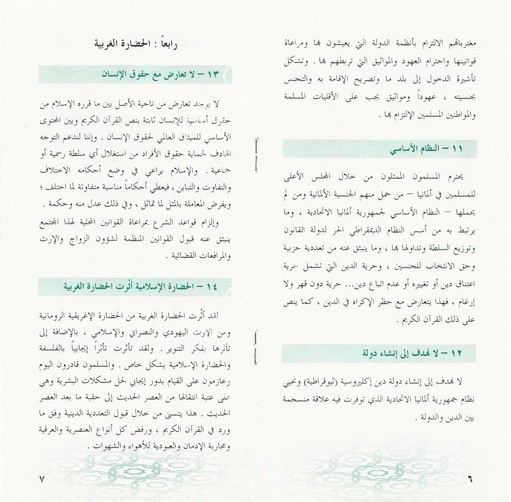 مغترباتهم الالتزام بأنظمة الدولة التي يعيشون بها ومراعاة
قوانينها واحترام العهود والمواثيق التي تربطهم بها . وتشكل
تأشيرة الدخول إلى بلد ما وتصريح الإقامة به والتجنس
بجنسيته ، عهوداً ومواثيق يجب على الأقليات المسلمة
والمواطنين المسلمين الإلتزام بها .
١١ – النظام الأساسي
يحترم المسلمون الممثلون من خلال المجلس الأعلى
للمسلمين في ألمانيا – من حمل منهم الجنسية الألمانية ومن لم
يحملها – النظام الأساسي لجمهورية ألمانيا الاتحادية ، وما
يرتبط به من أسس النظام الديمقراطي الحر لدولة القانون
وتوزيع السلطة وتداولها بها ، وما ينبثق عنه من تعددية حزبية
وحق الانتخاب للجنسين ، وحرية الدين التي تشمل حرية
اعتناق دين أو تغييره أو عدم اتباع دين... حرية دون قهر ولا
إرغام ، فهذا يتعارض مع حظر الإكراه في الدين ، كما ينص
على ذلك القرآن الكريم .
١٢ – لا نهدف إلى إنشاء دولة
لا نهدف إلى إنشاء دولة دين إكليروسية (ثيوقراطية) ونحيي
نظام جمهورية ألمانيا الاتحادية الذي توفرت فيه علاقة منسجمة
بين الدين والدولة .
٦
رابعاً : الحضارة الغربية
١٣ – لا تعارض مع حقوق الإنسان
لا يوجد تعارض من ناحية الأصل بين ما قرره الإسلام من
حقوق أساسية للإنسان ثابتة بنص القرآن الكريم وبين المحتوى
الأساسي للميثاق العالمي لحقوق الإنسان . وإننا لندعم التوجه
الهادف لحماية حقوق الأفراد من استغلال أي سلطة رسمية أو
جماعية . والإسلام يراعي في وضع أحكامه الاختلاف
والتفاوت والتباين ، فيعطي أحكاماً مناسبة متفاوتة لما اختلف ؛
ويفرض المعاملة بالمثل لما تماثل ، وفي ذلك عدل منه وحكمة .
وإلزام قواعد الشرع بمراعاة القوانين المحلية لهذا المجتمع
ينبثق عنه قبول القوانين المنظمة لشؤون الزواج والإرث
والمرافعات القضائية .
١٤ – الحضارة الإسلامية أثّرت الحضارة الغربية
لقد أثّرت الحضارة الغربية من الحضارة الإغريقية الرومانية
ومن الإرث اليهودي والنصراني والإسلامي ، بالإضافة إلى
تأثرها بفكر التنوير . ولقد تأثرت تأثراً إيجابياً بالفلسفة
والحضارة الإسلامية بشكل خاص . والمسلمون قادرون اليوم
وعازمون على القيام بدور إيجابي لحل مشكلات البشرية وهي
على عتبة انتقالها من العصر الحديث إلى حقبة ما بعد العصر
الحديث . هذا يتسنى من خلال قبول التعددية الدينية وفق ما
ورد في القرآن الكريم ، ورفض كل أنواع العنصرية والعرقية
ومحاربة الإدمان والعبودية للأهواء والشهوات .
٧